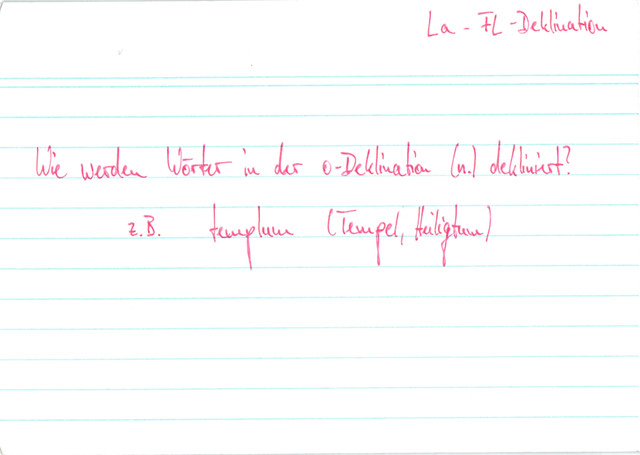 La - FL - Deklination
Wie werden Wörter in der o-Deklination (n.) dekliniert?
z.B. templum (Tempel, Heiligtum)